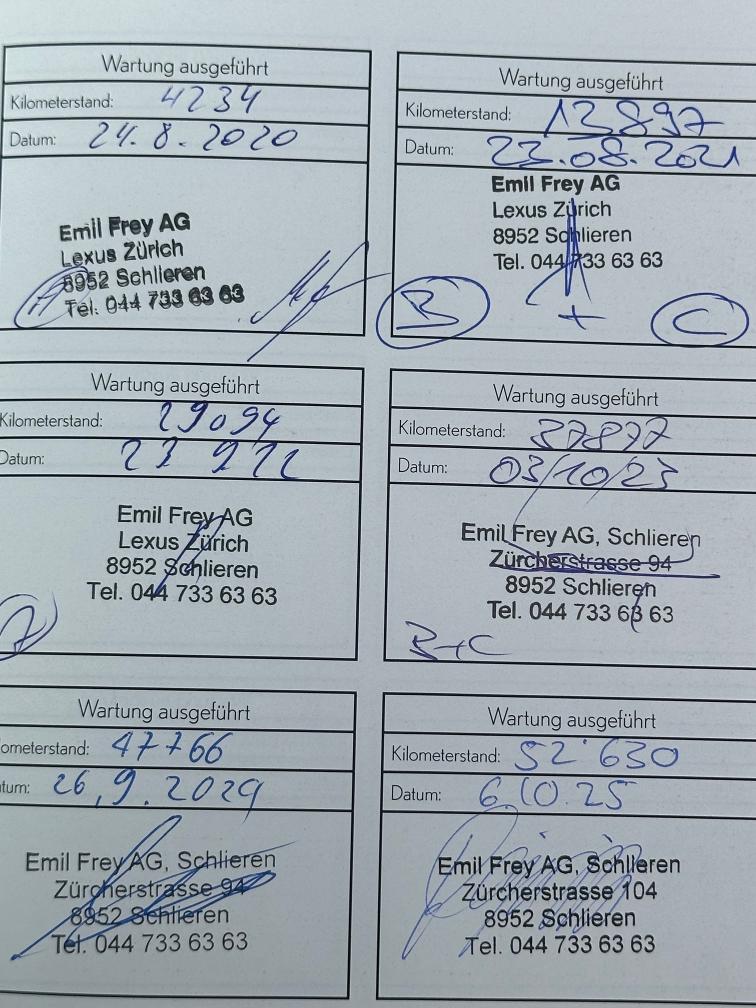 Wartung ausgeführt
Kilometerstand: 4234
Datum: 24.8.2020
Emil Frey AG
Lexus Zürich
8952 Schlieren
Tel. 044 733 63 63
Wartung ausgeführt
Kilometerstand: 12897
Datum: 23.08.2021
Emil Frey AG
Lexus Zürich
8952 Schlieren
Tel. 044 733 63 63
B + C
Wartung ausgeführt
Kilometerstand: 29094
Datum:
Emil Frey AG
Lexus Zürich
8952 Schlieren
Tel. 044 733 63 63
Wartung ausgeführt
Kilometerstand: 37877
Datum: 03/10/23
Emil Frey AG, Schlieren
Zürcherstrasse 94
8952 Schlieren
Tel. 044 733 63 63
B+C
Wartung ausgeführt
ometerstand: 47766
tum: 26.9.2024
Emil Frey AG, Schlieren
Zürcherstrasse 94
8952 Schlieren
Tel. 044 733 63 63
Wartung ausgeführt
Kilometerstand: 52'630
Datum: 6.10.25
Emil Frey AG, Schlieren
Zürcherstrasse 104
8952 Schlieren
Tel. 044 733 63 63